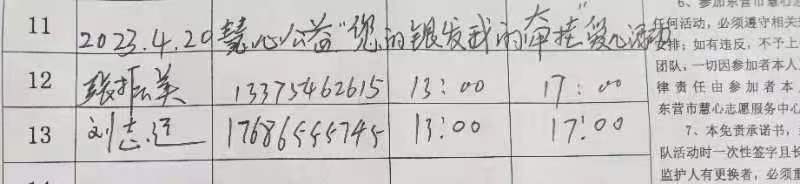 11 2023.4.20慧心公益"您的银发我的牵挂"爱心活动
12 张振美 13375462615 13:00 17:00
13 刘志运 17686555745 13:00 17:00
6、参加东营市慧心志
任何活动,必须遵守相关
安排;如有违反,不予上
团队、一切因参加者本人
律责任由参加者本
东营市慧心志愿服务中心
7、本免责承诺书,
队活动时一次性签字且长
监护人有更换者,必须重